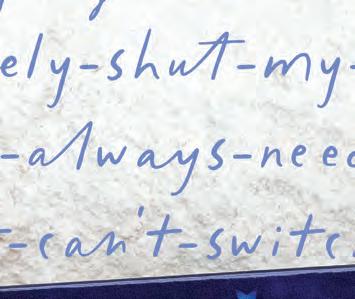 ely-shut-my-
-always-need
-can't-switc